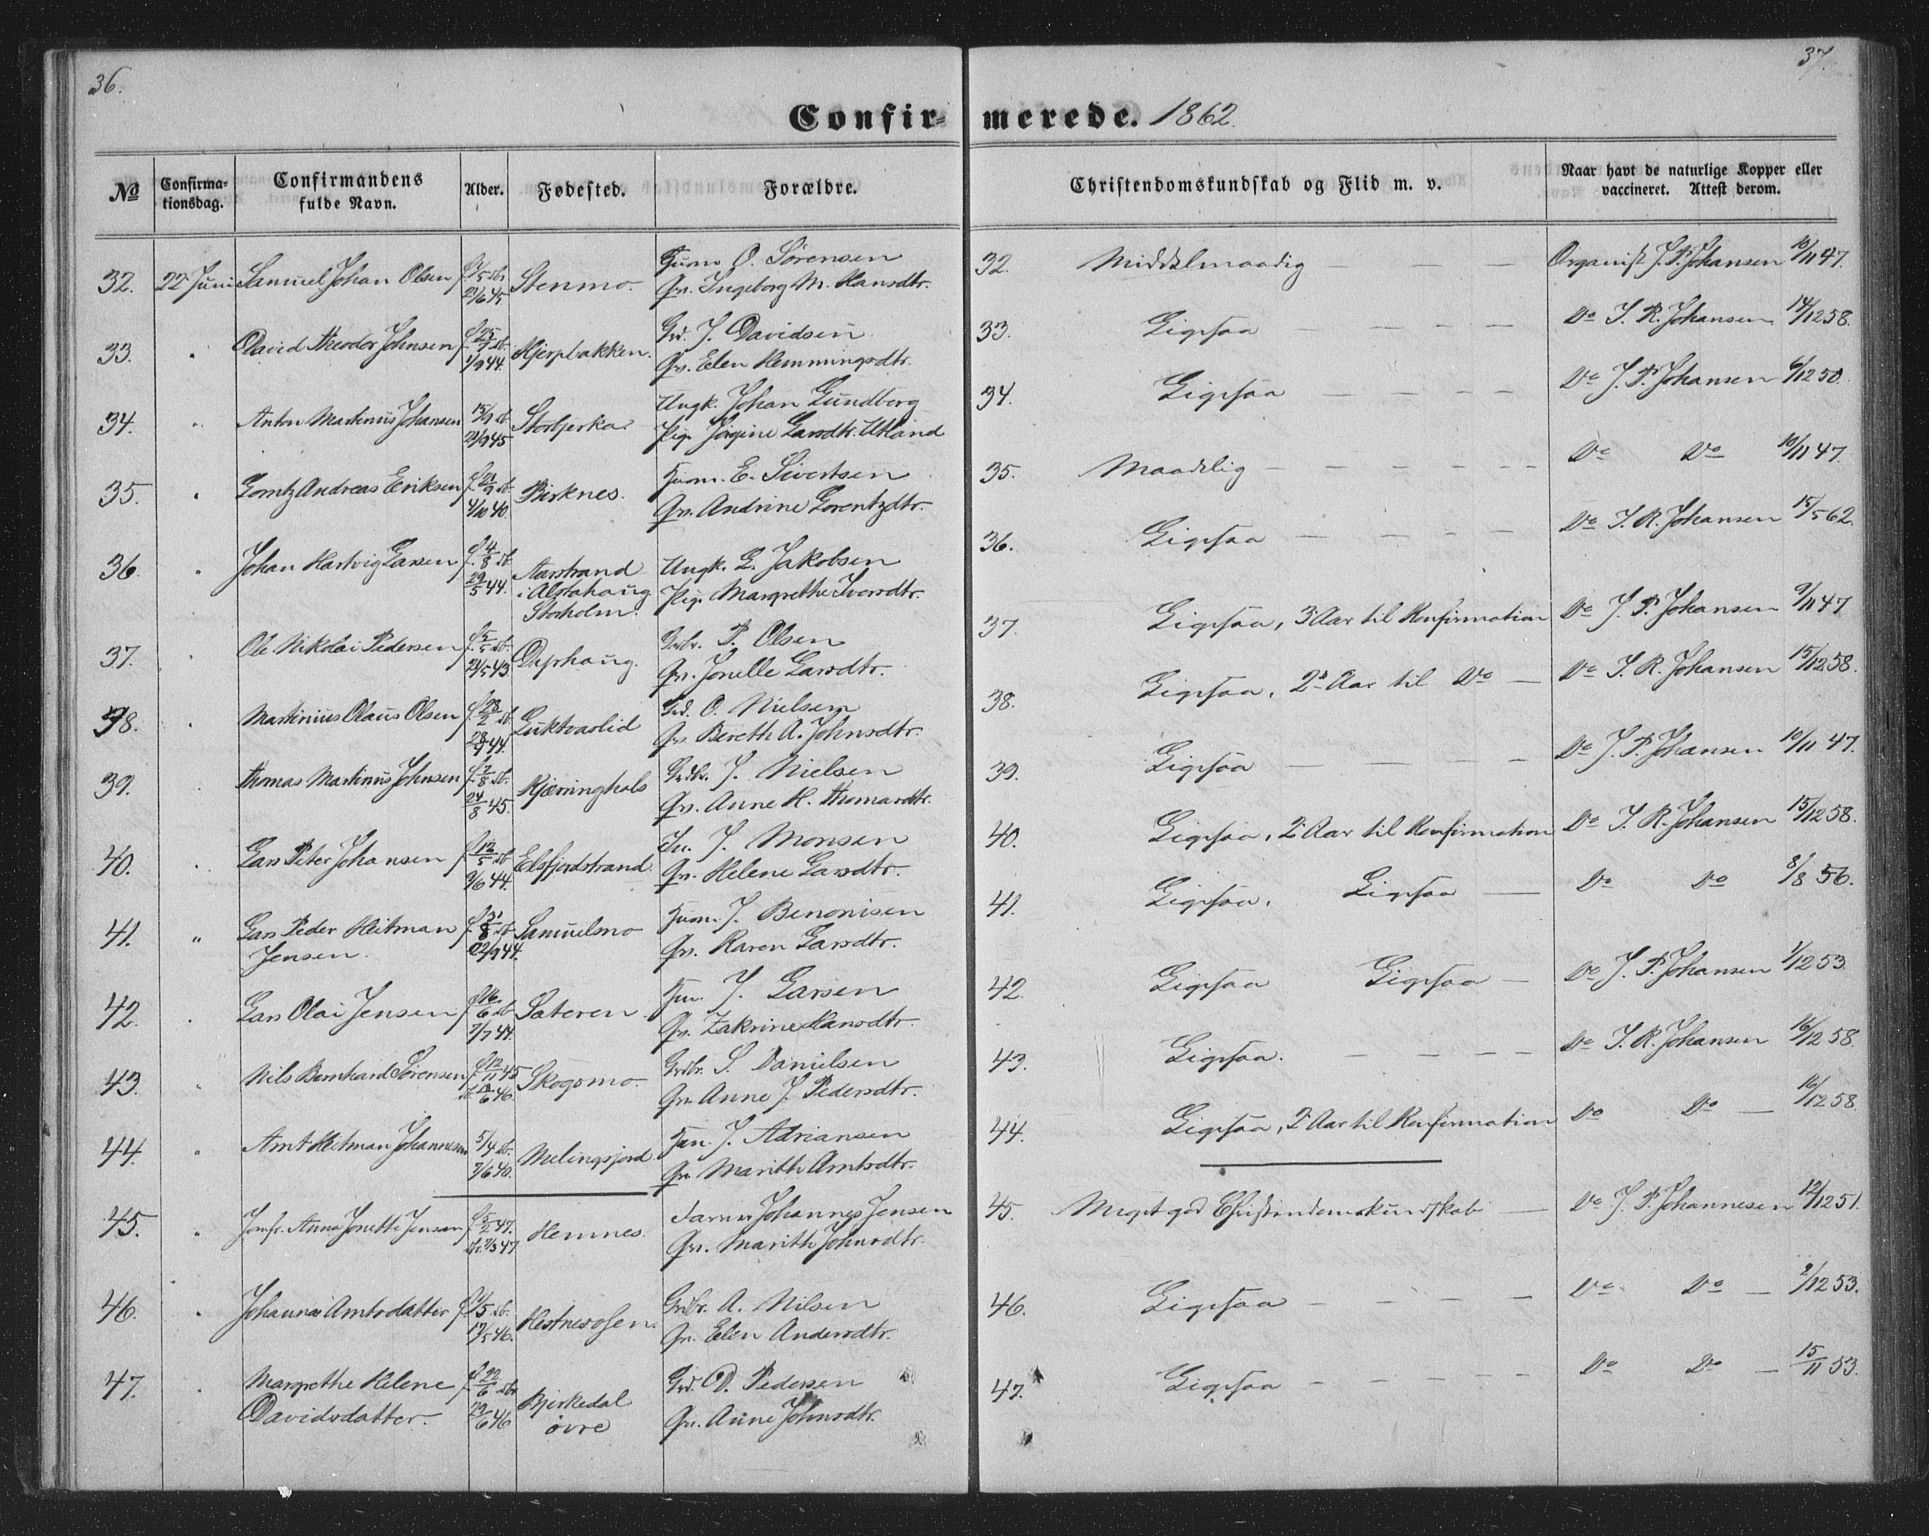 36.
37.
Confir-merede. 1862.
No Confirma-tionsdag. Confirmandens fulde Navn. Alder. Fødested. Forældre. Christendomskundskab og Flid m. v. Naar havt de naturlige Kopper eller vaccineret. Attest derom.
32. 22 Juni Samuel Johan Olsen 21/6 45. Stenmo. O. Sørensen
Qv. Ingeborg M. Hansdtr.
33. " David Theodor Johnsen 1/9 44. Hjerpbakken. Grd. J. Davidsen
Qv. Elen Hemmingsdtr.
34. " Anton Martinius Johansen 21/9 45. Ungk. Johan Lundberg
Pig. Jørgine Larsdtr. Utland
35. " Lorntz Andreas Eriksen 4/10 40. Birknes. Huusm. E. Sivertsen
Qv. Andrine Lorentzdtr.
36. " Johan Hartvig Larsen f. 4/8 db. 29/5 44. Aarstrand i Alstahaug Storholm. Ungk. L. Jakobsen
Pig. Margrethe Iversdtr.
37. " Ole Nikolai Pedersen f. 5/5 db. 21/5 43. Duphaug. Grbr. P. Olsen
Qv. Jonelle Larsdtr.
38. " Martinius Olaus Olsen f. 23/2 db. Luktvaslid Grd. O. Nielsen
Qv. Bereth A. Johnsdtr.
39. " Thomas Martinus Johnsen f. 7/8 db. 24/8 45. Kjærringhals Grdbr. J. Nielsen
Qv. Anne K. Thomasdtr.
40. " Lars Peter Johansen f. 12/5 db. 9/6 44. Elsfjordstrand J. Monsen
Qv. Helene Larsdtr.
41. " Lars Peder Heitman Jensen. f. 31/8 db. 22/9 44. Samuelsmo Husm. J. Benonisen
Qv. Karen Larsdtr.
42. " Lars Olai Jensen f. 16/6 db. 7/7 44. Sæteren J. Larsen
Qv. Zakrine Hansdtr.
43. " Nils Bernhard Sørensen f. 12/11 45 Skogsmo. Grdbr. S. Danielsen
Qv. Anne J. Pedersdtr.
44. " Arnt Heitman Johannesen 5/4 db. 7/6 40. J. Adriansen
Qv. Marith Arntsdtr.
45. " Jomfr. Anna Jonette Jensen f. 5/2 47. Hemnes. Johannes Jensen
Qv. Marith Johnsdtr.
46. " Johanna Arntsdatter 17/5 46. Hestnesosen. Grdbr. A. Nilsen
Qv. Elen Andersdtr.
47. " Margrethe Helene Davidsdatter. f. 22/6 db. 29/6 46 Bjerkedal øvre Grd. D. Pedersen
Qv. Anne Johnsdtr.
32. Middelmaadig — — — Organist J. P. Johansen 10/11 47.
33. Ligesaa — — — — Do I. R. Johansen 14/12 58.
34. Ligesaa — — — — Do J. P. Johansen 6/12 50.
35. Maadelig — — — — Do Do 10/11 47.
36. Ligesaa — — — — Do I. R. Johansen 15/5 62.
37. Ligesaa, 3 Aar til Konfirmation Do J. P. Johansen 9/11 47
38. Ligesaa, 2 Aar til Do — Do I. R. Johansen 15/12 58.
39. Ligesaa — — — — Do J. P. Johansen 10/11 47.
40. Ligesaa, 2 Aar til Konfirmation Do I. R. Johansen 15/12 58.
41. Ligesaa. Ligesaa — Do Do 8/8 56.
42. Ligesaa Ligesaa — Do J. P. Johansen 1/12 53.
43. Ligesaa. — — — — Do I. R. Johansen 16/12 58.
44. Ligesaa, 2 Aar til Konfirmation Do Do — 16/12 58
45. Meget god Christendomskundskab — Do J. P. Johannesen 12/12 51.
46. Ligesaa — — — — Do Do — 2/12 53.
47. Ligesaa — — — — Do Do — 15/11 53.